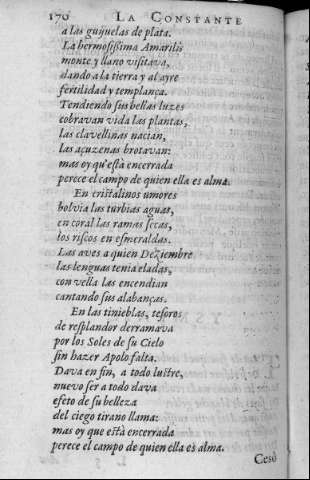 170 LA CONSTANTE
a las guijuelas de plata.
La hermosissima Amarilis
monte y llano visitava,
dando a la tierra y al ayre
fertilidad y templança.
Tendiendo sus bellas luzes
cobravan vida las plantas,
las clavellinas nacian,
las açuzenas brotavan:
mas oy qu'està encerrada
perece el campo de quien ella es alma.
En cristalinos umores
bolvia las turbias aguas,
en coral las ramas secas,
los riscos en esmeraldas.
Las aves a quien Deziembre
las lenguas tenia eladas,
con vella las encendian
cantando sus alabanças.
En las tinieblas, tesoros
de resplandor derramava
por los Soles de su Cielo
sin hazer Apolo falta.
Dava en fin, a todo lustre,
nuevo ser a todo dava
efeto de su belleza
del ciego tirano llama:
mas oy que està encerrada
perece el campo de quien ella es alma.
Cesò